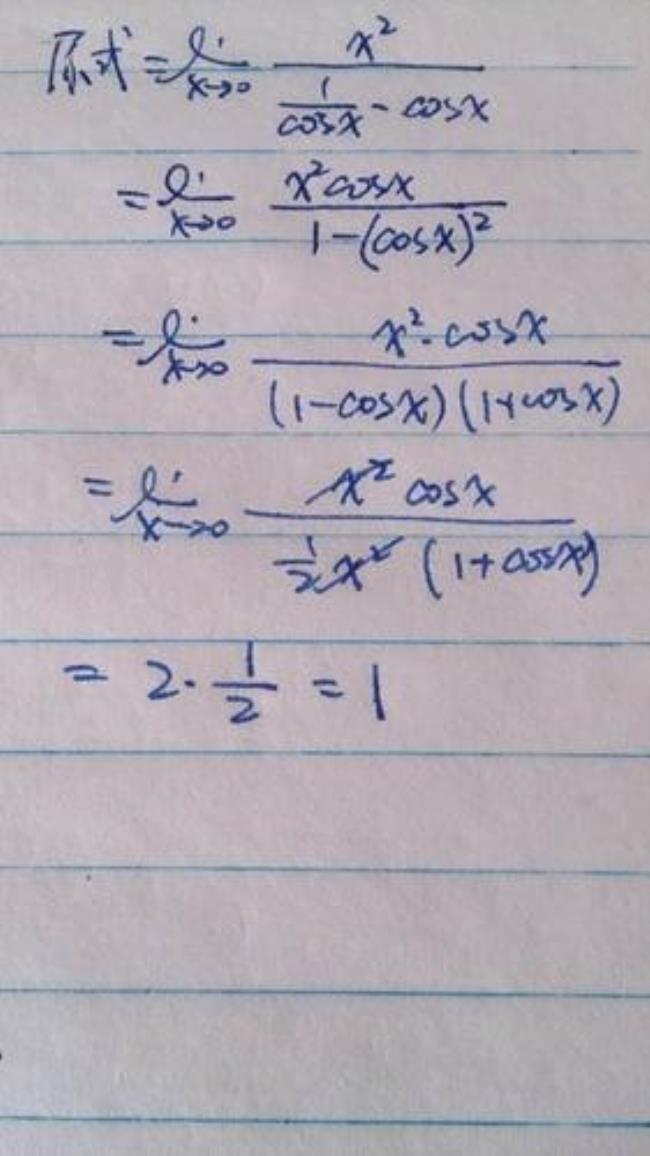 原式 = lim x→0 x² / (1/cosx - cosx)
= lim x→0 x²cosx / (1-(cosx)²)
= lim x→0 x²·cosx / ((1-cosx)(1+cosx))
= lim x→0 x² cosx / (1/2 x² (1+cosx))
= 2·1/2 = 1